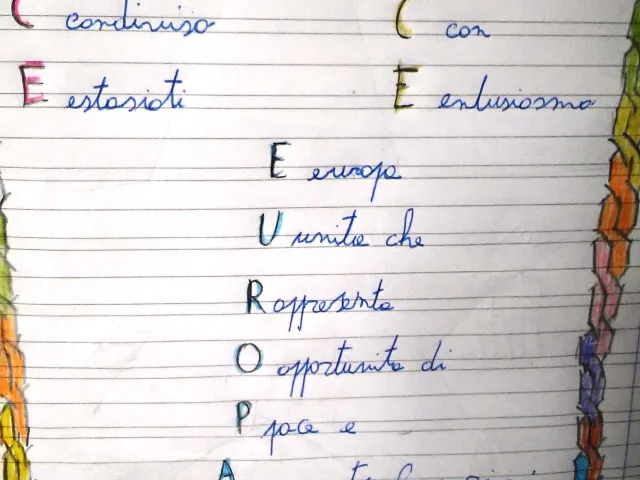 C condiviso C con
E estasiati E entusiasmo
E europa
U unita che
R rappresenta
O opportunita di
P pace e
A